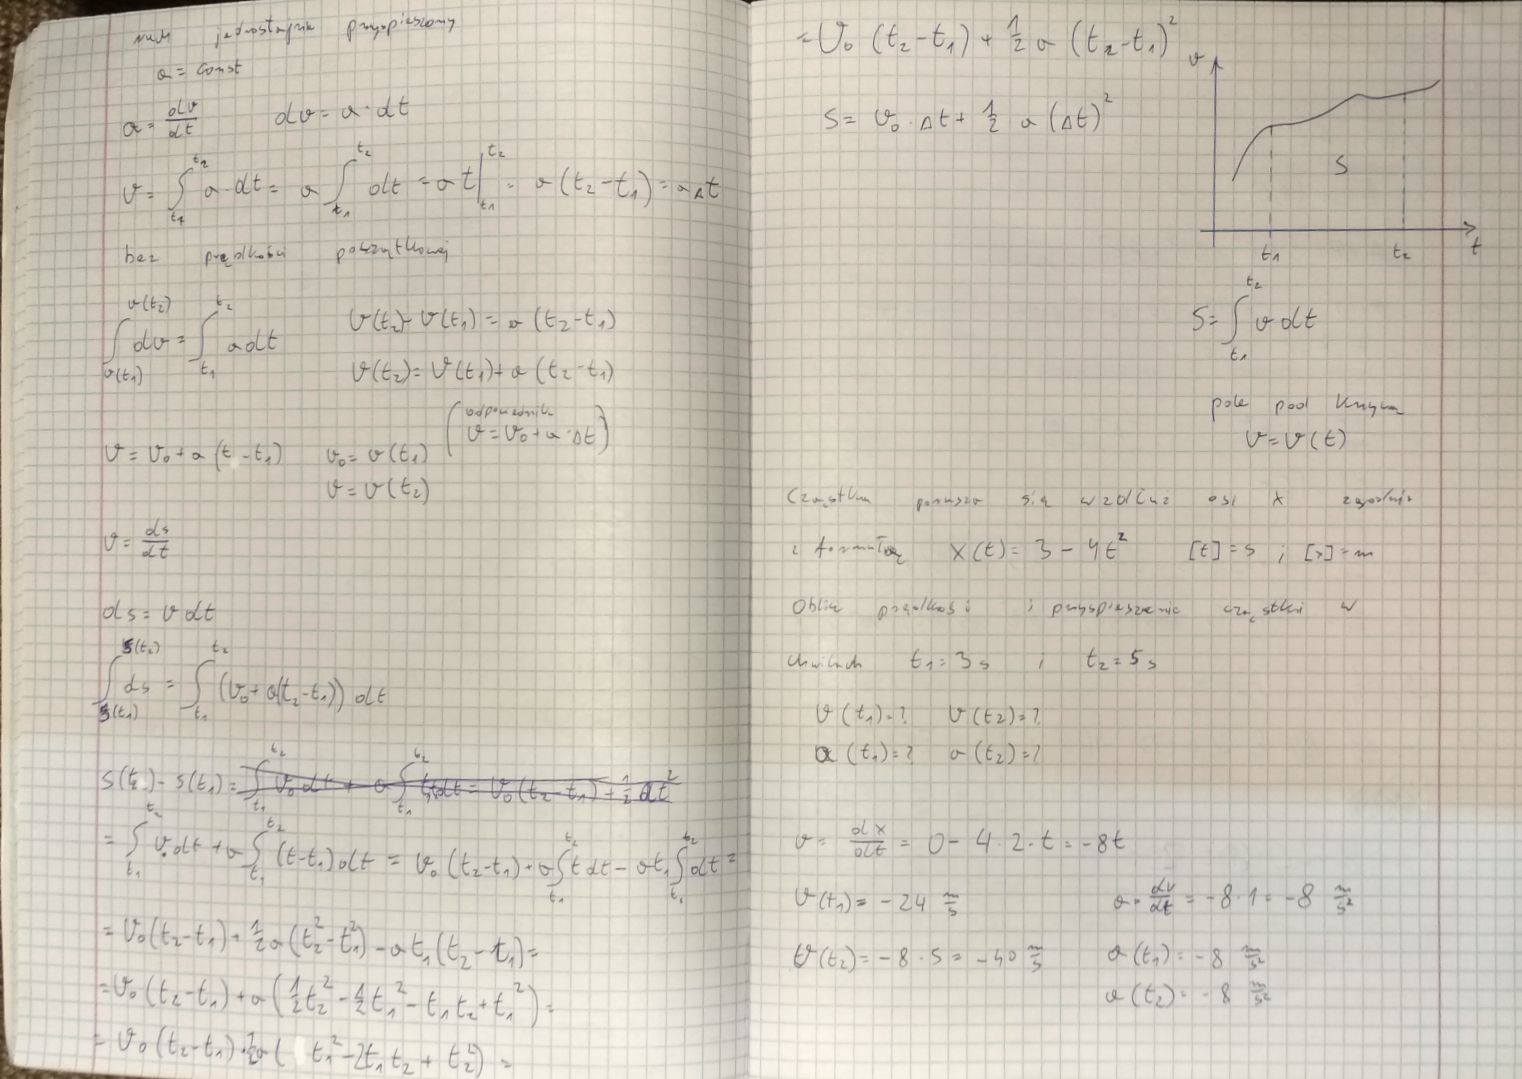 ruch jednostajnie przyspieszony
a = const
a = dv/dt    dv = a · dt
v = ∫_{t₁}^{t₂} a · dt = a ∫_{t₁}^{t₂} dt = a t |_{t₁}^{t₂} = a (t₂ - t₁) = a Δt
bez prędkości początkowej
∫_{v(t₁)}^{v(t₂)} dv = ∫_{t₁}^{t₂} a dt    v(t₂) - v(t₁) = a (t₂ - t₁)
v(t₂) = v(t₁) + a (t₂ - t₁)
(odpowiednik v = v₀ + a · Δt)
v = v₀ + a (t - t₁)    v₀ = v(t₁)
v = v(t₂)
v = ds/dt
ds = v dt
∫_{s(t₁)}^{s(t₂)} ds = ∫_{t₁}^{t₂} (v₀ + a(t₂ - t₁)) dt
s(t₂) - s(t₁) = ∫_{t₁}^{t₂} v₀ dt + a ∫_{t₁}^{t₂} dt = v₀ (t₂ - t₁) + ½ at²
= ∫_{t₁}^{t₂} v₀ dt + a ∫_{t₁}^{t₂} (t - t₁) dt = v₀ (t₂ - t₁) + a ∫_{t₁}^{t₂} t dt - at₁ ∫_{t₁}^{t₂} dt =
= v₀ (t₂ - t₁) + ½ a (t₂² - t₁²) - a t₁ (t₂ - t₁) =
= v₀ (t₂ - t₁) + a (½ t₂² - ½ t₁² - t₁ t₂ + t₁²) =
= v₀ (t₂ - t₁) + ½ a ( t₁² - 2t₁ t₂ + t₂²) =
= v₀ (t₂ - t₁) + ½ a (t₂ - t₁)²
s = v₀ · Δt + ½ a (Δt)²
v
S
t₁    t₂    t
S = ∫_{t₁}^{t₂} v dt
pole pod krzywą
v = v(t)
Cząstka porusza się wzdłuż osi x zgodnie
z formułą x(t) = 3 - 4t²    [t] = s ; [x] = m
Oblicz prędkość i przyspieszenie cząstki w
chwilach t₁ = 3 s i t₂ = 5 s
v(t₁) = ?    v(t₂) = ?
a(t₁) = ?    a(t₂) = ?
v = dx/dt = 0 - 4 · 2 · t = -8t
v(t₁) = -24 m/s    a = dv/dt = -8 · 1 = -8 m/s²
v(t₂) = -8 · 5 = -40 m/s    a(t₁) = -8 m/s²
a(t₂) = -8 m/s²